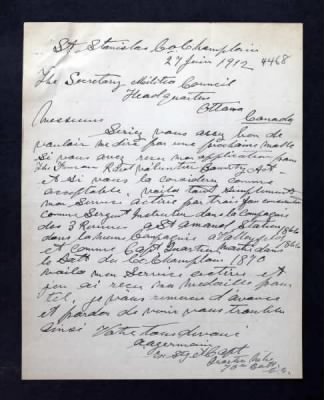 St. Stanislas Co. Champlain
27 Juin 1912 4468
The Secretary Militia Council
Headquarters
Ottawa
Canada
Messieurs
Seriez vous assez bon de
vouloir me dire par une prochaine malle
Si vous avez recu mon application pour
The Fenian Raid Volunteer Bounty Act
et Si vous la considerez comme
acceptable, voila tout Simplement
mon Service active par trois fois
comme Sergent Instructeur dans la Compagnie
des 3 Rivieres a St Armand Station 1866
dans la meme Compagnie a 1866
et comme Capt Quartier maitre dans
le Batt du Co Champlain 1870
voila mon Service active et
j'en ai recu ma medaille pour
tel, je vous remercie d'avance
et pardon de vous troubler
ainsi Votre tout devoué
Ex Sgt & Capt
Quarter
70th Batt